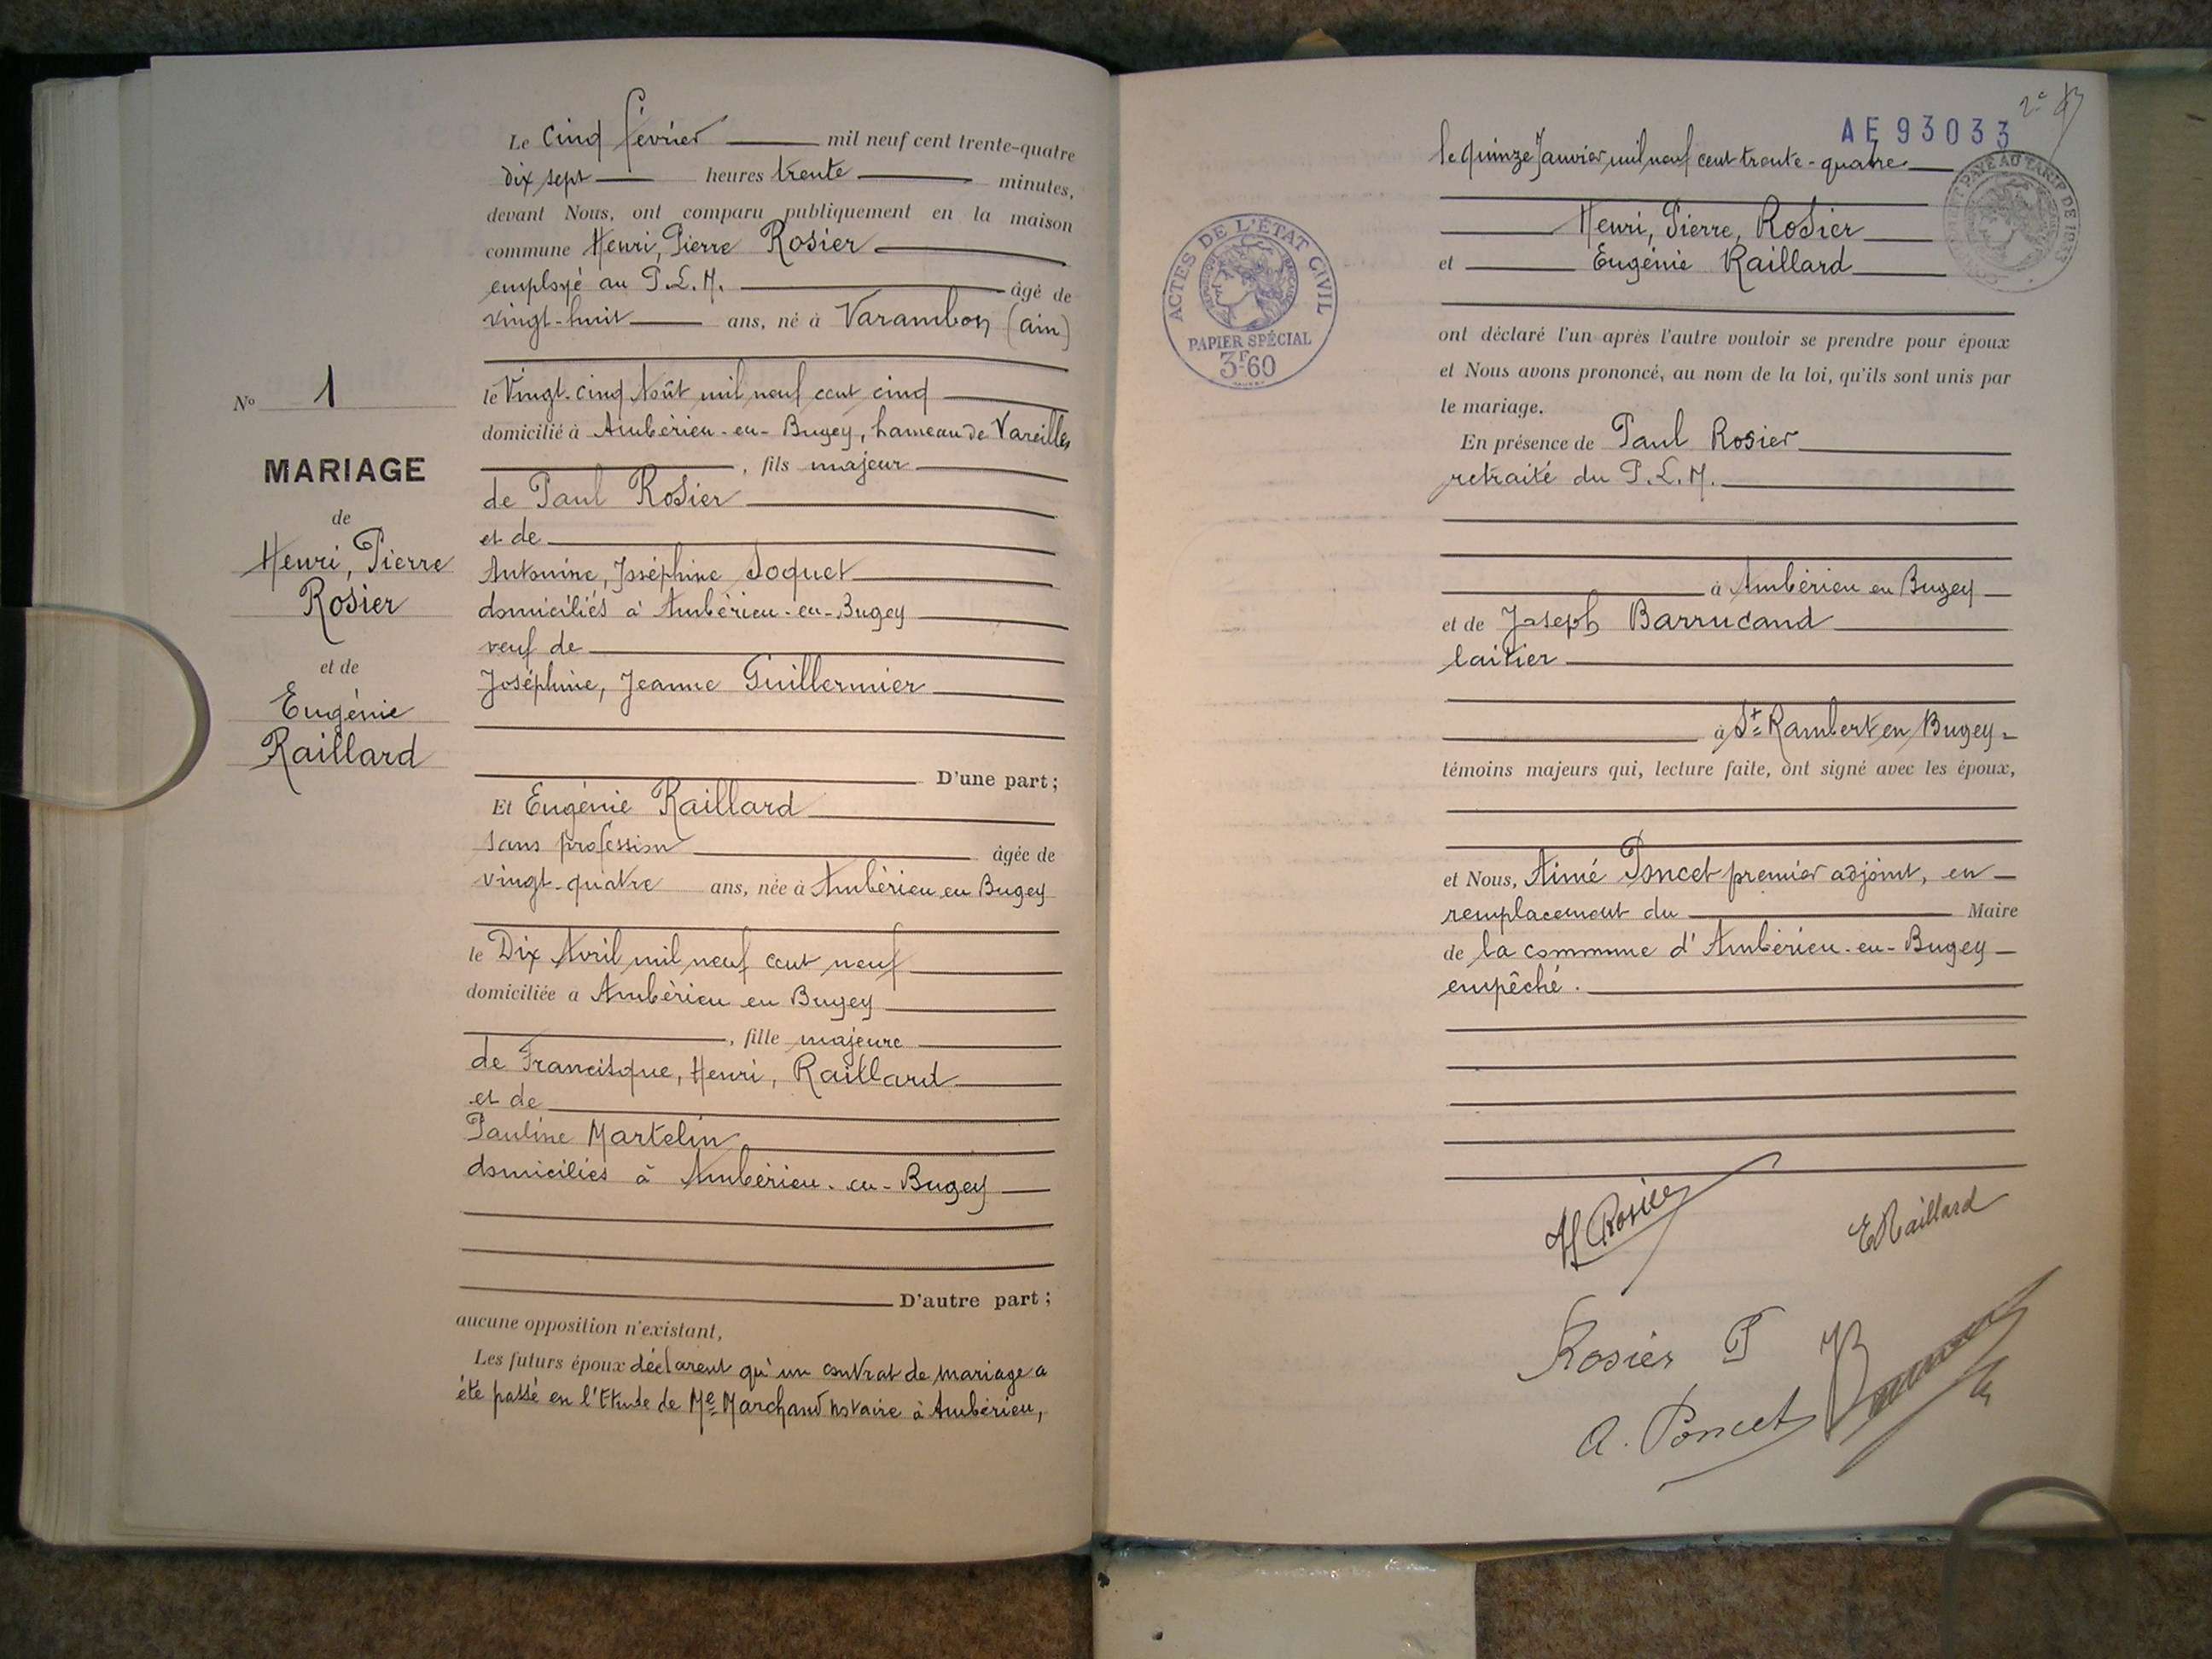 N° 1
MARIAGE
de
Henri, Pierre
Rosier
et de
Eugénie
Raillard
Le cinq février mil neuf cent trente-quatre
dix sept heures trente minutes,
devant Nous, ont comparu publiquement en la maison
commune Henri, Pierre Rosier
employé au P.L.M. âgé de
vingt-huit ans, né à Varambon (ain)
le Vingt-cinq Août mil neuf cent cinq
domicilié à Ambérieu-en-Bugey, hameau de Vareilles
, fils majeur
de Paul Rosier
et de
Antonine, Joséphine Soquet
domiciliés à Ambérieu-en-Bugey
veuf de
Joséphine, Jeanne Guillermier
D'une part ;
Et Eugénie Raillard
sans profession âgée de
vingt-quatre ans, née à Ambérieu en Bugey
le Dix Avril mil neuf cent neuf
domiciliée à Ambérieu en Bugey
, fille majeure
de Francisque, Henri, Raillard
et de
Pauline Martelin
domiciliés à Ambérieu-en-Bugey
D'autre part ;
aucune opposition n'existant,
Les futurs époux déclarent qu'un contrat de mariage a
été passé en l'Etude de Me Marchand notaire à Ambérieu,
2e
AE 93033
le quinze Janvier mil neuf cent trente-quatre
Henri, Pierre, Rosier
et Eugénie Raillard
ACTES DE L'ÉTAT CIVIL
RÉPUBLIQUE FRANÇAISE
PAPIER SPÉCIAL
3F60
PAYÉ AU TARIF DE
ont déclaré l'un après l'autre vouloir se prendre pour époux
et Nous avons prononcé, au nom de la loi, qu'ils sont unis par
le mariage.
En présence de Paul Rosier
retraité du P.L.M.
à Ambérieu en Bugey
et de Joseph Barrucand
laitier
à St Rambert en Bugey
témoins majeurs qui, lecture faite, ont signé avec les époux,
et Nous, Aimé Poncet premier adjoint, en
remplacement du Maire
de la commune d'Ambérieu-en-Bugey
empêché.
H Rosier
E Raillard
Rosier P
A. Poncet